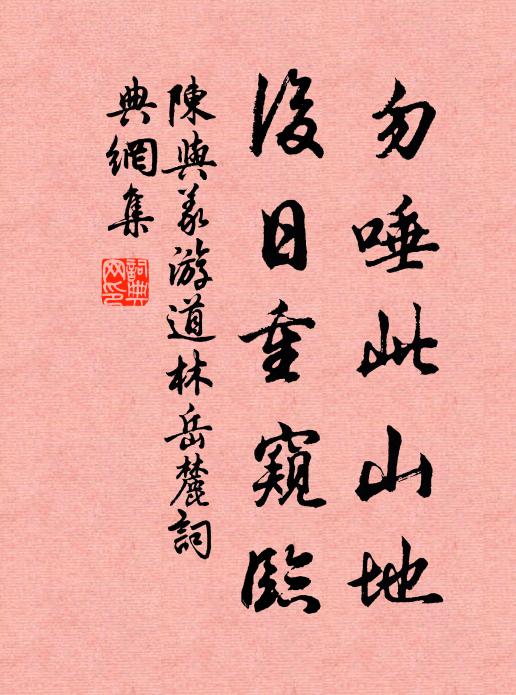 勿唾此山地
後日重窺臨
陳與義游道林岳麓詞
典網集
詞典
网印